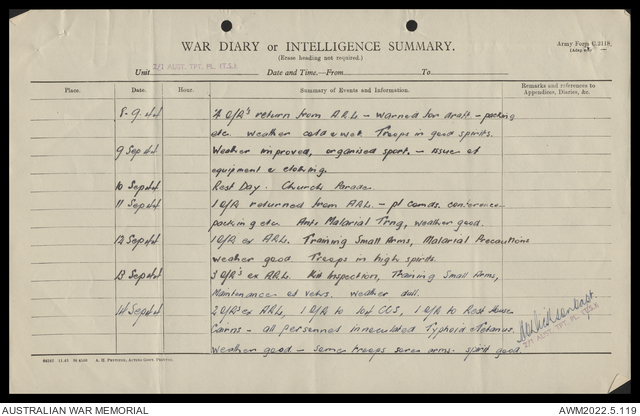 WAR DIARY or INTELLIGENCE SUMMARY.
(Erase heading not required.)
Army Form C.2118.
(Adapted)
Unit 2/1 AUST. TPT. PL. I.T.S.I. Date and Time.—From To
Place. Date. Hour. Summary of Events and Information. Remarks and references to Appendices, Diaries, &c.
8-9-44 4 O/R's return from A.R.L. - warned for draft - packing
etc. weather cold & wet. Troops in good spirits.
9 Sep 44 Weather improved, organised sport. - issue of
equipment & clothing.
10 Sep 44 Rest Day. Church Parade
11 Sep 44 1 O/R returned from A.R.L. - pl comds. conference
packing etc Anti Malarial Trng, weather good.
12 Sep 44 1 O/R ex A.R.L. Training Small Arms, Malarial Precautions
weather good Troops in high spirits.
13 Sep 44 3 O/R's ex A.R.L. Kit Inspection, Training Small Arms,
Maintenance of vehs. weather dull.
14 Sep 44 2 O/R's ex A.R.L, 1 O/R to 104 CCS, 1 O/R to Rest House
Cairns - all personnel inoculated Typhoid & Tetanus.
weather good - some troops sore arms. spirit good
Capt
2/1 AUST. TPT. PL.
A. H. PETTIFER, ACTING GOVT. PRINTER.
AUSTRALIAN WAR MEMORIAL
AWM2022.5.119